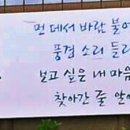 먼 데서 바람 불어
풍경 소리 들리
보고 싶은 내 마음
찾아간 줄 알